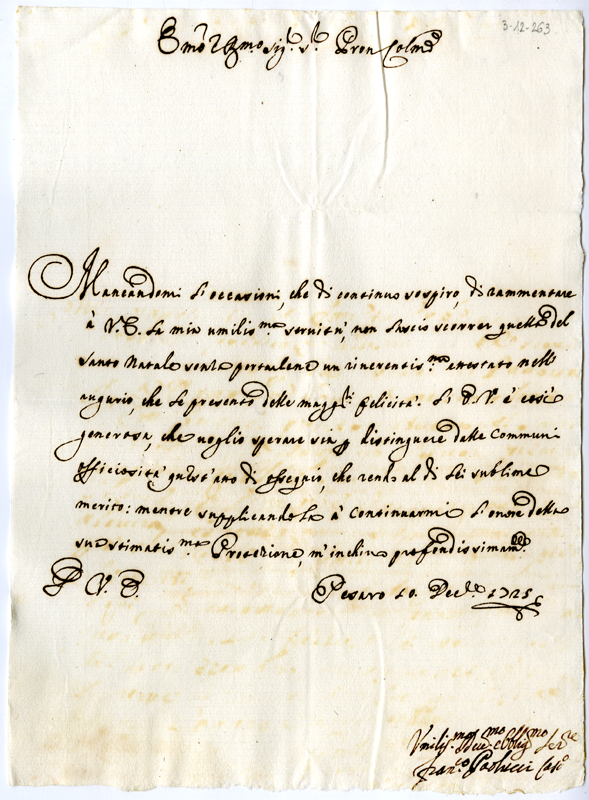 3-12-263
Emo: e Rmo: Sig.r S.r Pron Colmo
Mancandomi l'occasioni, che di continuo sospiro, di rammentare
à V.E. la mia umilis.ma servitù, non lascio scorrer quella del
santo Natale senza portarlene un riverentis.mo attestato nell'
augurio, che le presento delle magg.ri felicità. L'E.V. è così
generosa, che voglio sperare sia p distinguere dalle communi
officiosità quest'atto di ossequio, che rendo al di Lei sublime
merito: mentre supplicandola à continuarmi l'onore della
sua stimatis.ma Protezione, m'inchino profondissimam.te
D V. E.
Pesaro 10. Dec.e 1725
Umilis.mo Dev.mo Obblig.mo Ser.re
Fran.co Paolucci